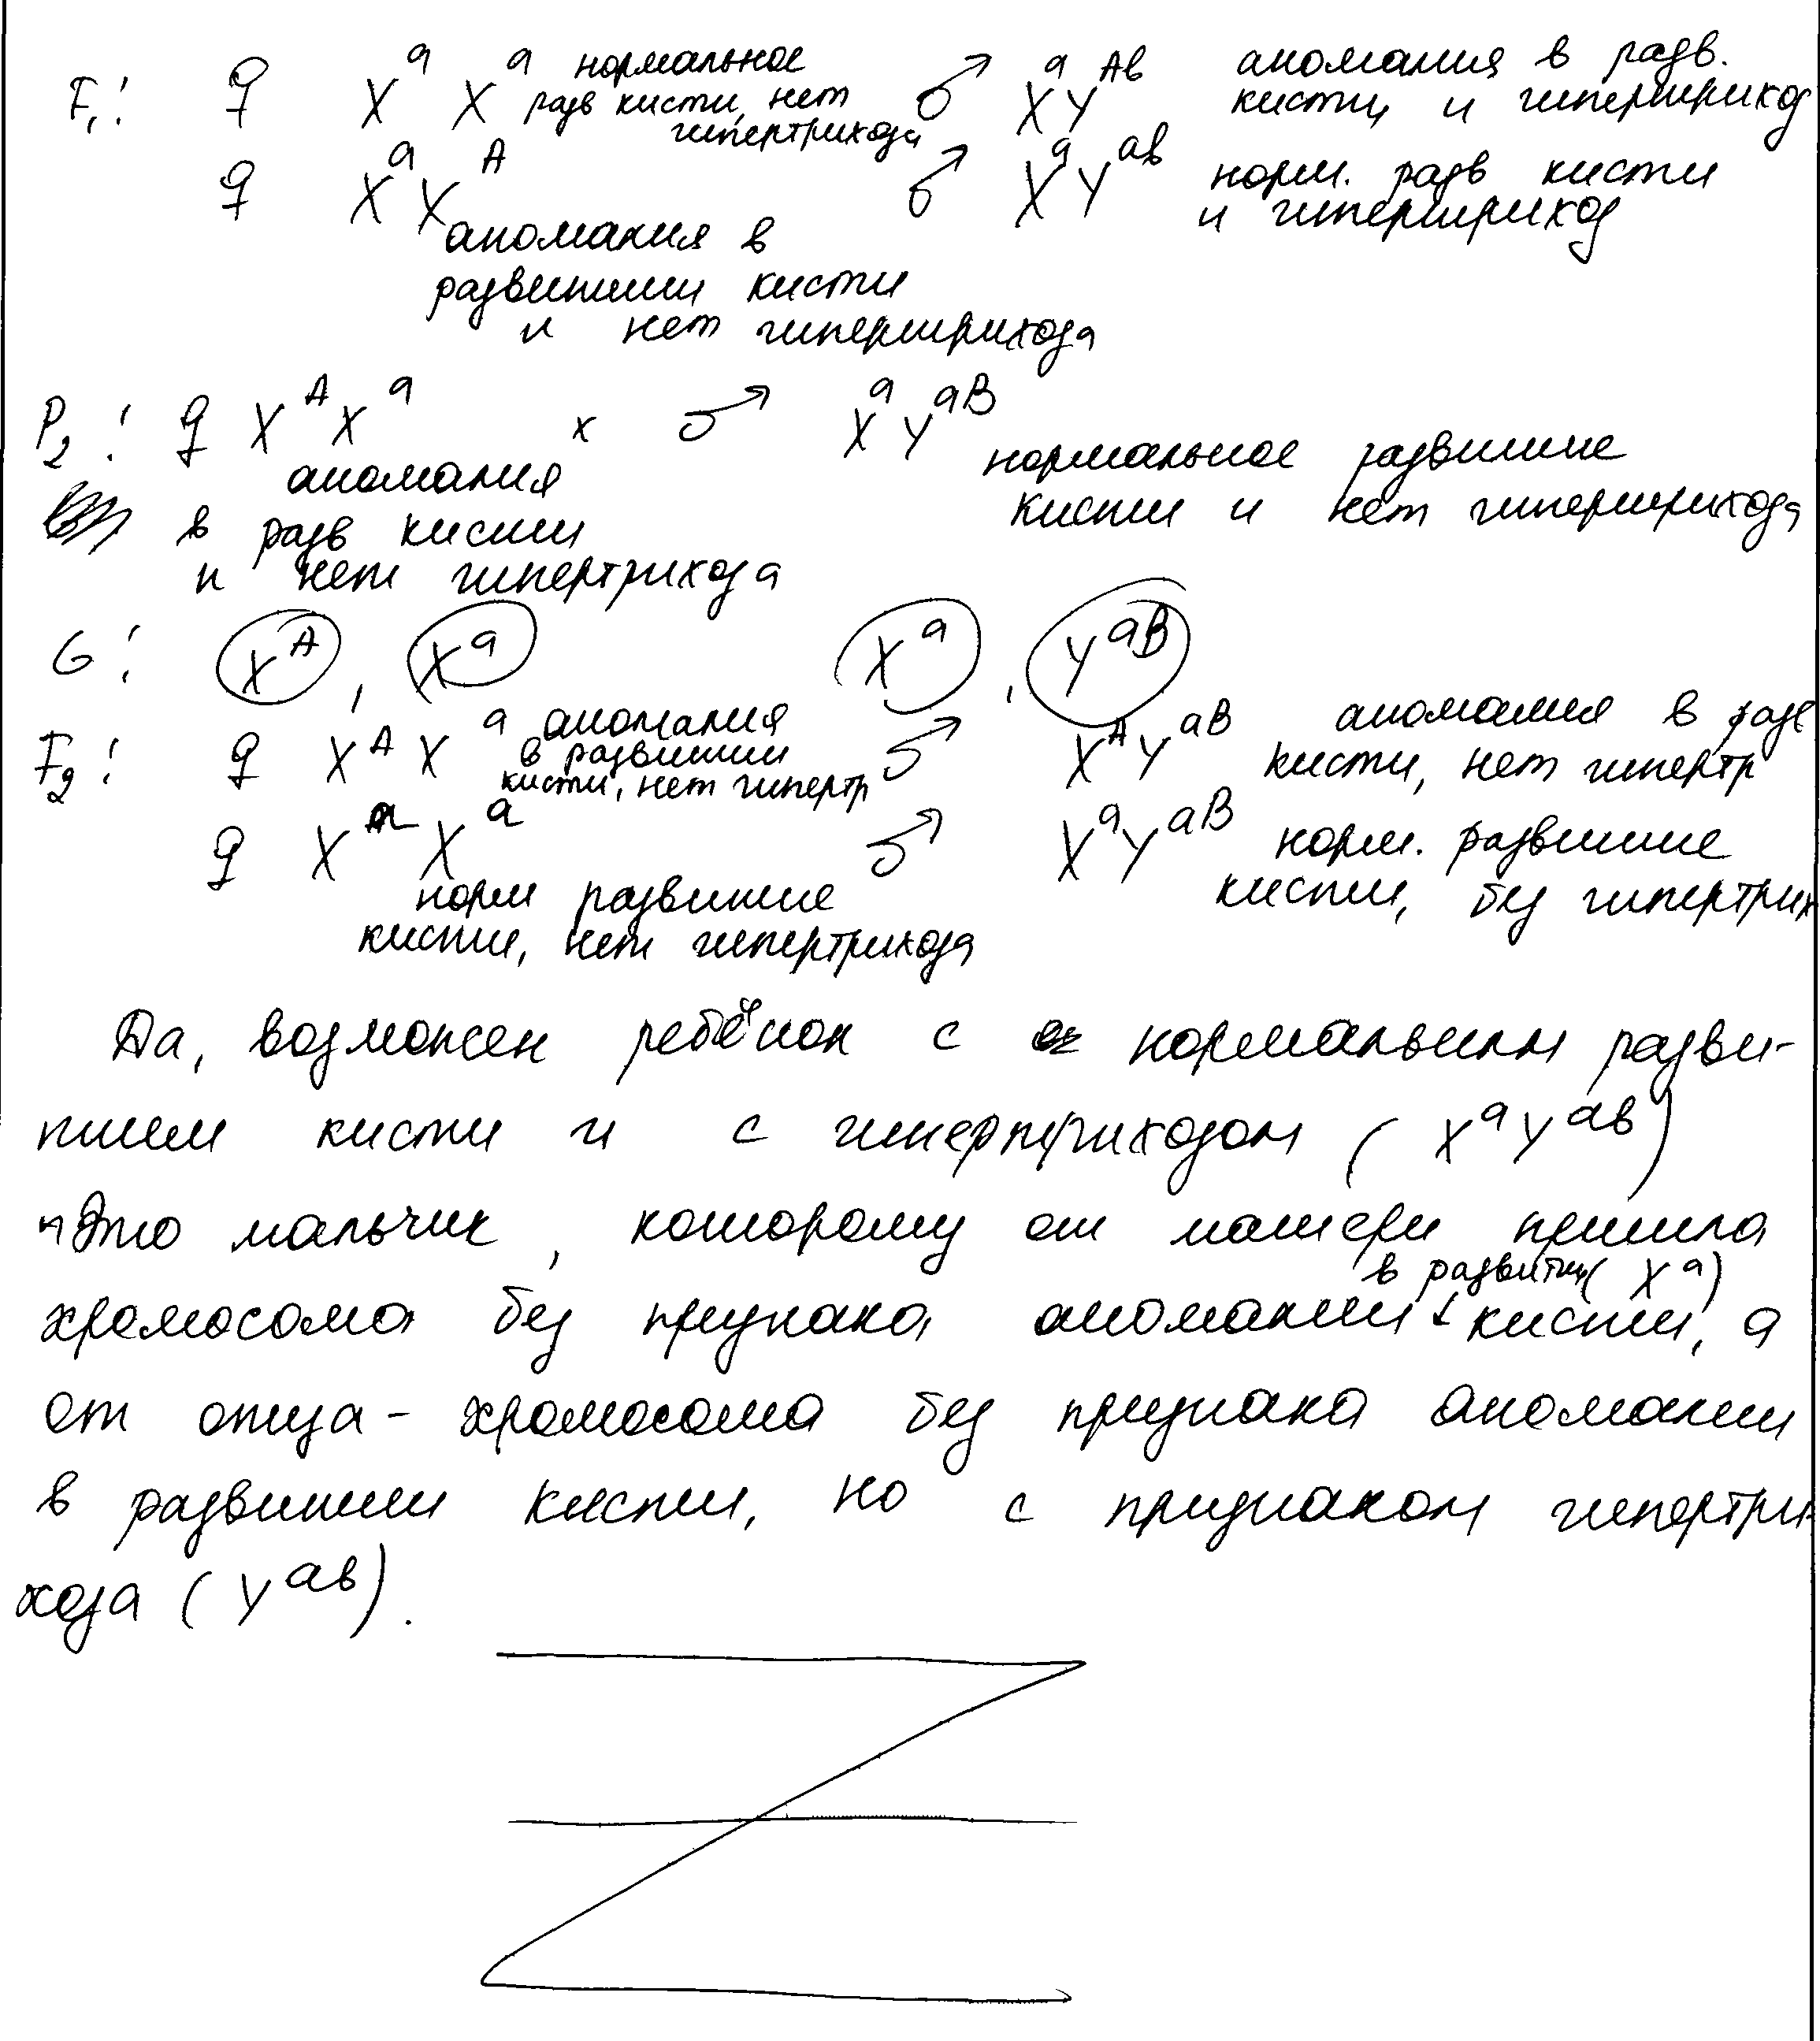 F₁: ♀ XᵃXᵃ нормальное разв кисти, нет гипертрихоза ♂ XᵃYᴬᵇ аномалия в разв. кисти и гипертрихоз
♀ XᵃXᴬ аномалия в развитии кисти и нет гипертрихоза ♂ XᵃYᵃᵇ норм. разв кисти и гипертрихоз
P₂: ♀ XᴬXᵃ x ♂ XᵃYᵃᴮ
аномалия в разв кисти и нет гипертрихоза
нормальное развитие кисти и нет гипертрихоза
G: Xᴬ, Xᵃ Xᵃ, Yᵃᴮ
F₂: ♀ XᴬXᵃ аномалия в развитии кисти, нет гипертр ♂ XᴬYᵃᴮ аномалия в разв кисти, нет гипертр
♀ XᵃXᵃ норм развитие кисти, нет гипертрихоза ♂ XᵃYᵃᴮ норм. развитие кисти, без гипертрих
Да, возможен ребёнок с нормальным разви-
тием кисти и с гипертрихозом (XᵃYᵃᵇ)
Это мальчик, которому от матери пришла
хромосома без признака аномалии в развитии кисти (Xᵃ), а
от отца - хромосома без признака аномалии
в развитии кисти, но с признаком гипертри-
хоза (Yᵃᵇ).